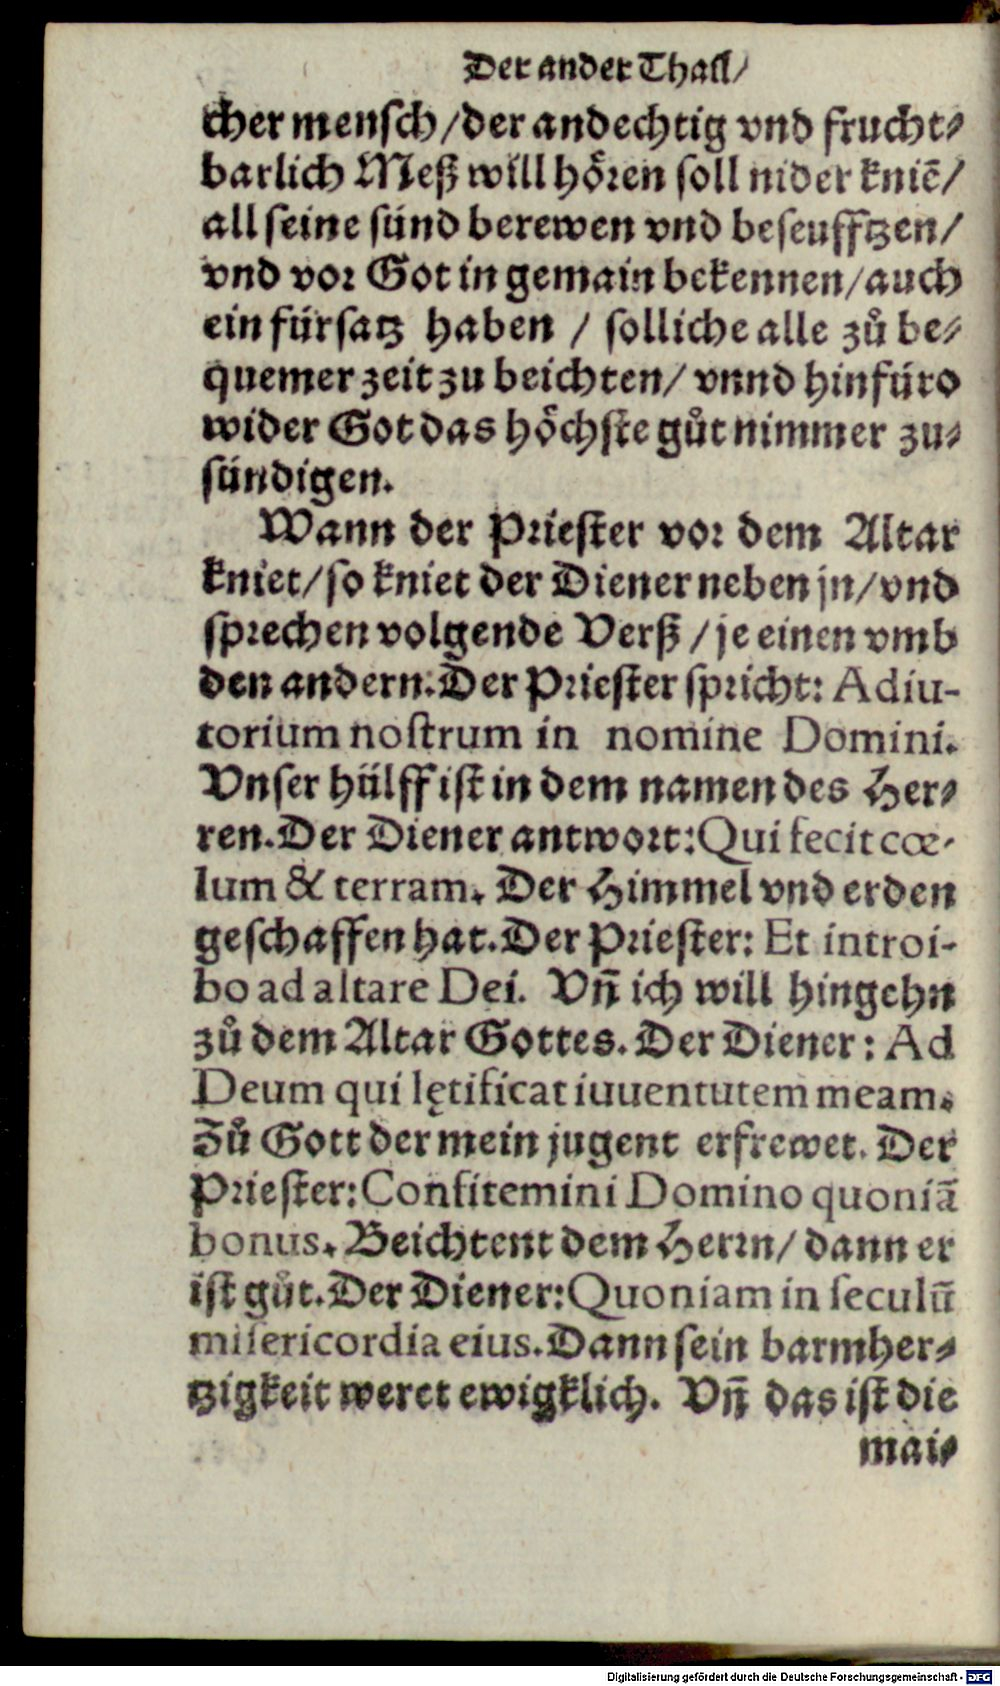 Der ander Thail/
cher mensch/der andechtig vnd frucht⸗
barlich Meß will hoͤren soll nider kniē/
all seine sünd berewen vnd beseufftzen/
vnd vor Got in gemain bekennen/auch
ein fürsatz haben / solliche alle zů be⸗
quemer zeit zu beichten/ vnnd hinfüro
wider Got das hoͤchste gůt nimmer zu⸗
sündigen.
Wann der Priester vor dem Altar
kniet/so kniet der Diener neben jn/vnd
sprechen volgende Verß /je einen vmb
den andern. Der Priester spricht: Adiu-
torium nostrum in nomine Domini.
Vnser hülff ist in dem namen des Her⸗
ren. Der Diener antwort: Qui fecit cœ-
lum & terram. Der Himmel vnd erden
geschaffen hat. Der Priester: Et introi-
bo ad altare Dei. Vn̄ ich will hingehn
zů dem Altar Gottes. Der Diener: Ad
Deum qui lętificat iuuentutem meam.
Zů Gott der mein jugent erfrewet. Der
Priester: Confitemini Domino quoniā
bonus. Beichtent dem Herrn/ dann er
ist gůt. Der Diener: Quoniam in seculū
misericordia eius. Dann sein barmher⸗
tzigkeit weret ewigklich. Vn̄ das ist die
mai⸗
Digitalisierung gefördert durch die Deutsche Forschungsgemeinschaft - DFG